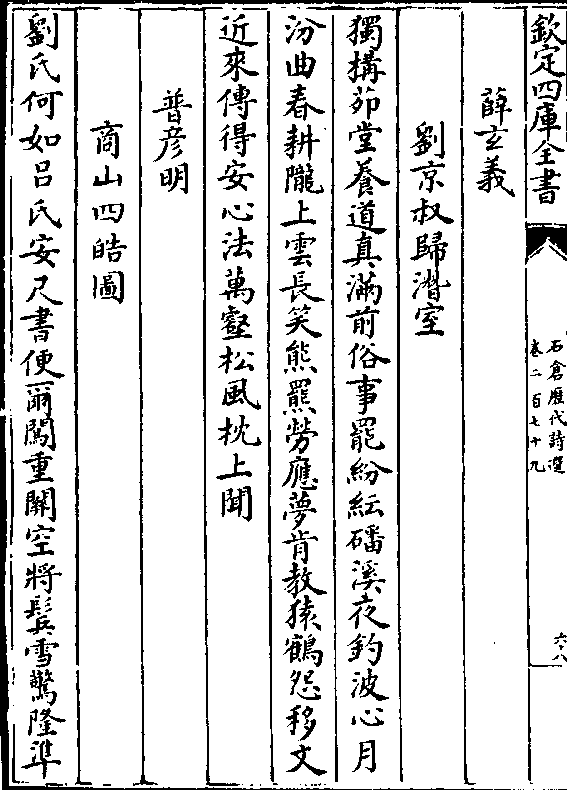 欽定四庫全書
石倉歷代詩選
卷二百七十九
六十八
薛玄義
劉京叔歸潛室
獨搆茆堂養道真滿前俗事罷紛紜磻溪夜釣波心月
汾曲春耕隴上雲長笑熊羆勞應夢肯教猿鶴怨移文
近來傳得安心法萬壑松風枕上聞
普彥明
商山四皓圖
劉氏何如呂氏安尺書便爾闖重關空將鬂雪驚隆準